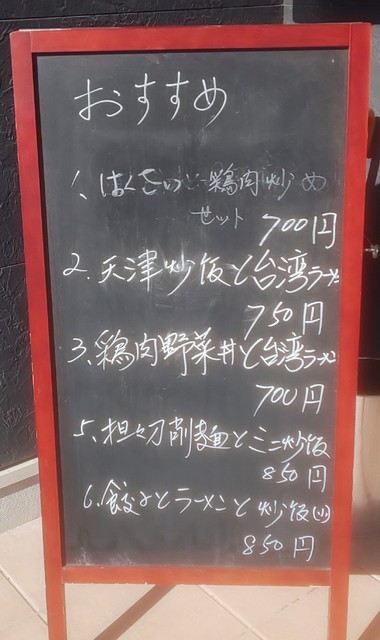 おすすめ
1、はくさいと鶏肉炒め
セット
700円
2、天津炒飯と台湾ラーメン
750円
3、鶏肉野菜丼と台湾ラーメン
700円
5、担々刀削麺とミニ炒飯
850円
6、餃子とラーメンと炒飯(小)
850円